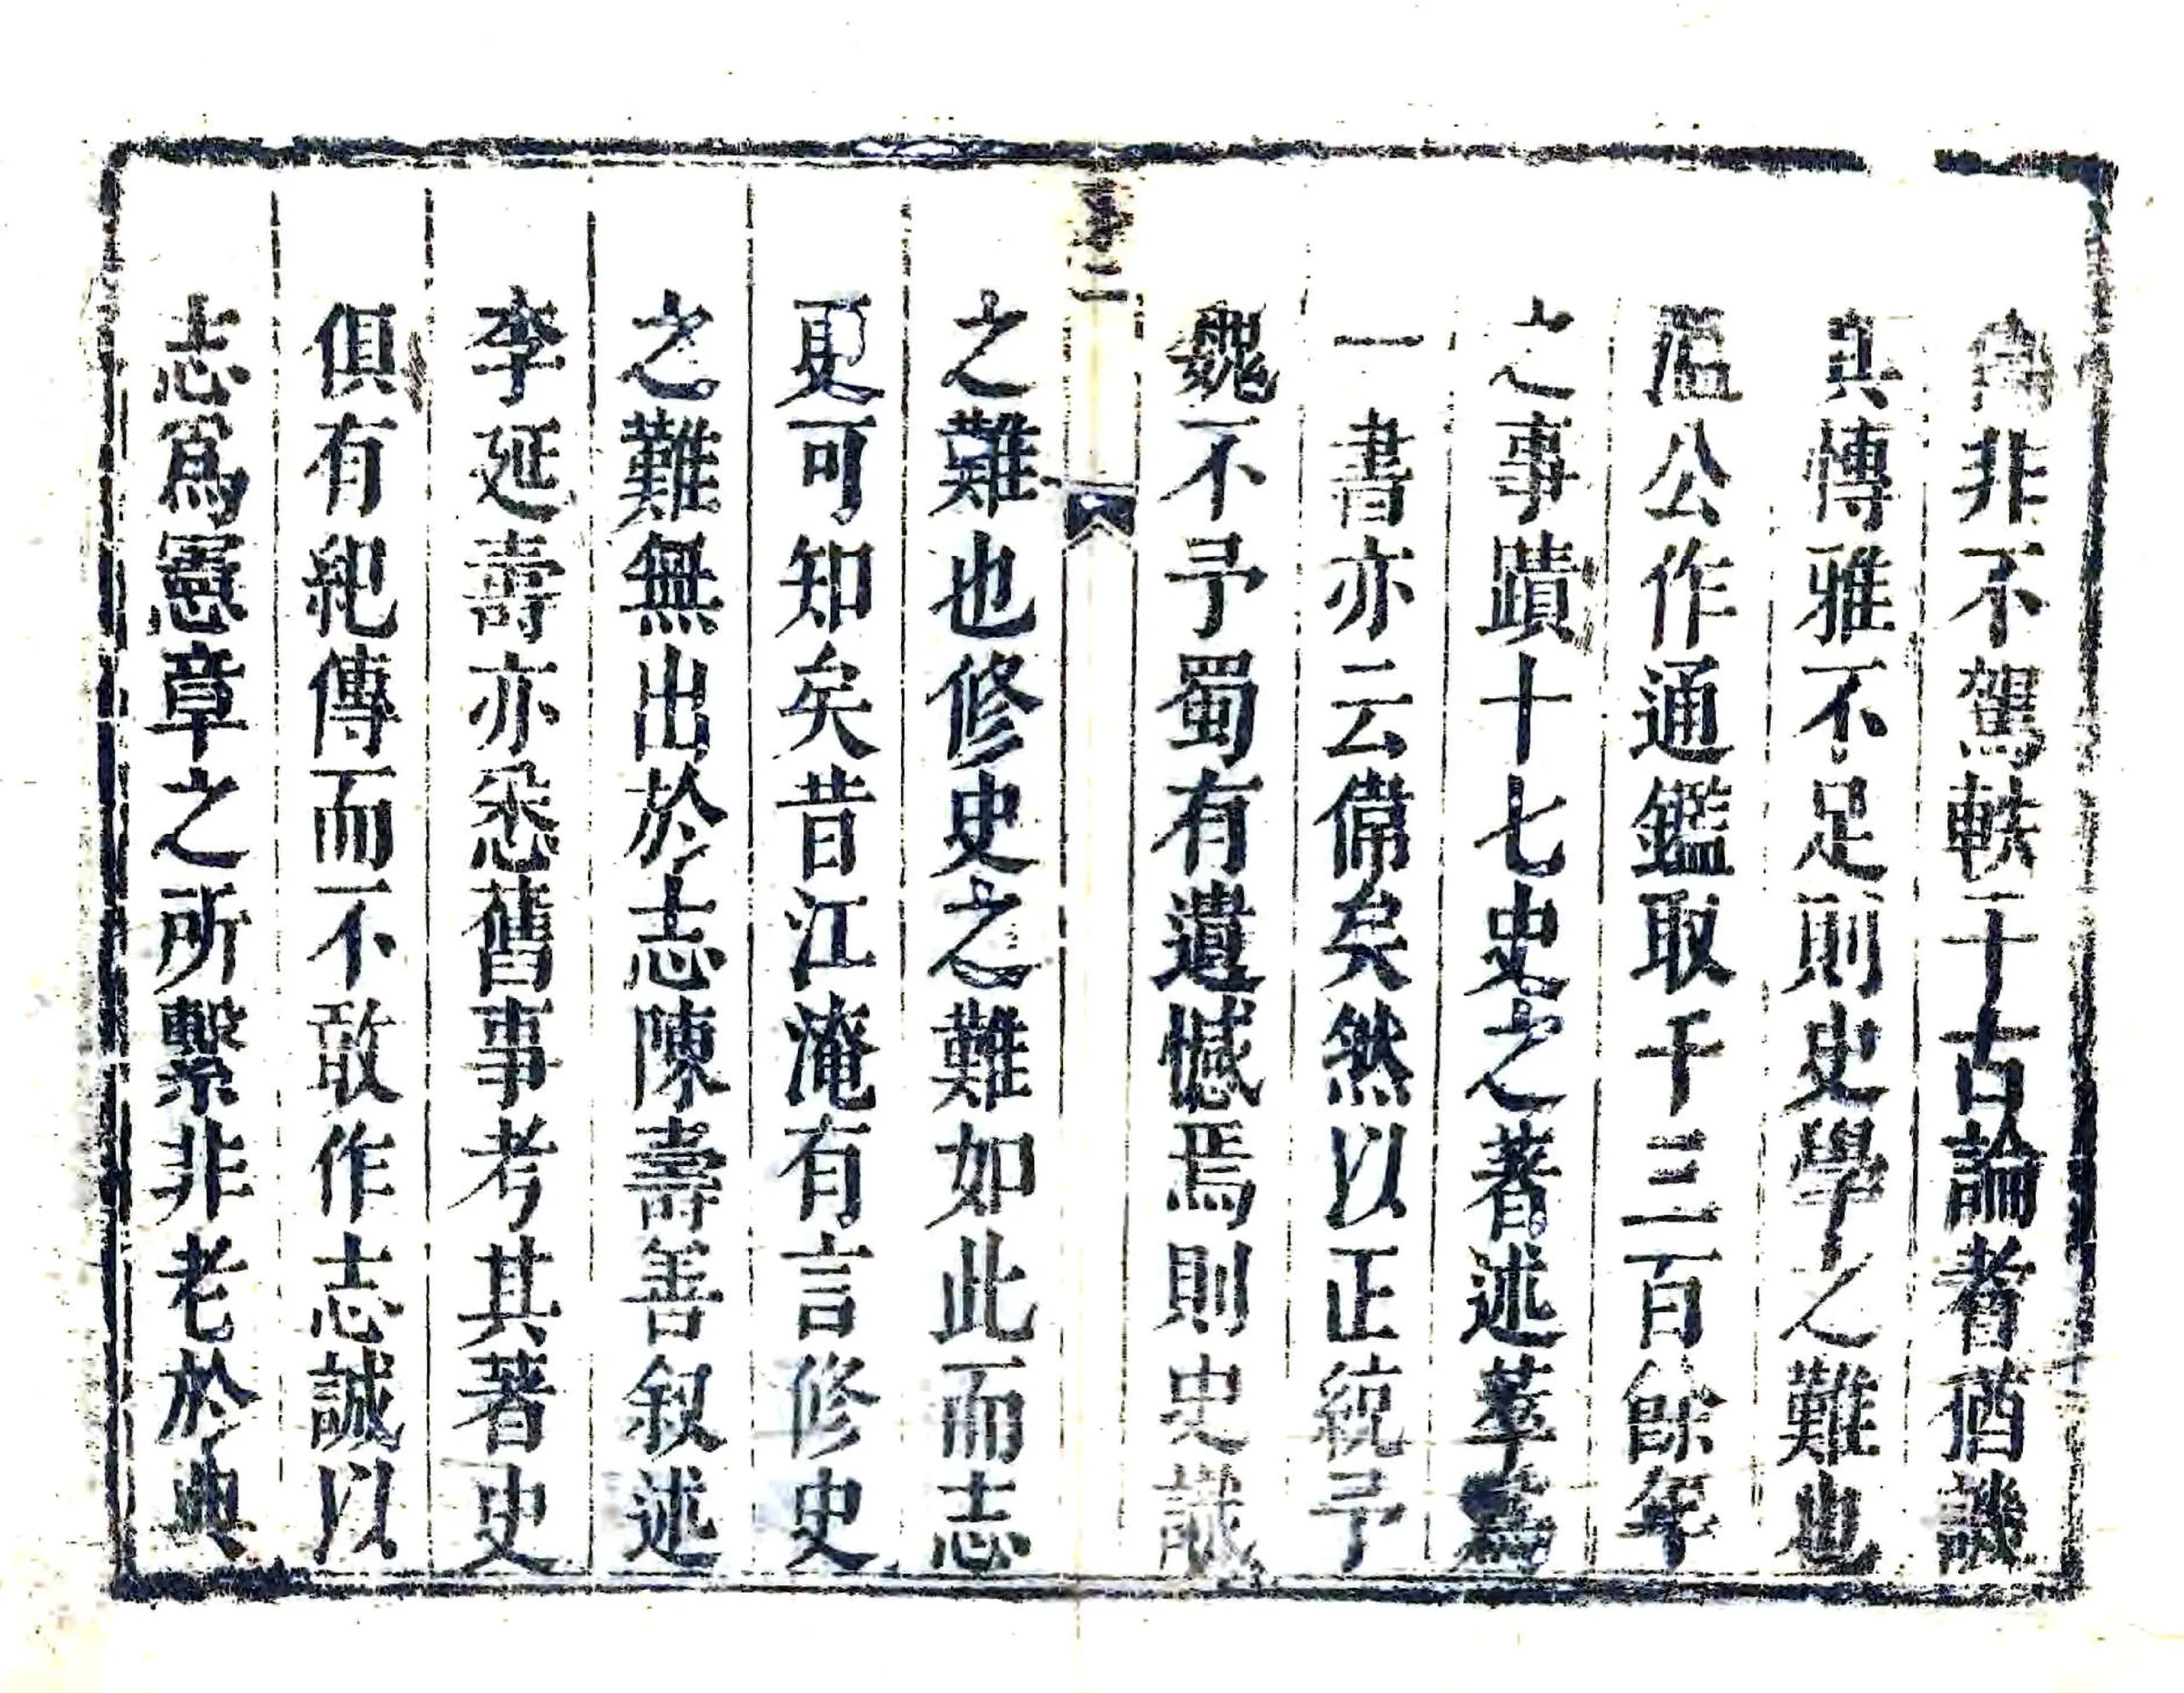 非不駕軼千古論者猶譏
其愽雅不足則史學之難也
溫公作通鑑取千三百餘年
之事蹟十七史之著述萃爲
一書亦云偹矣然以正統予
魏不予蜀有遺憾焉則史識
序二
之難也修史之難如此而志
更可知矣昔江淹有言修史
之難無出於志陳壽善叙述
李延壽亦悉舊事考其著史
俱有紀傳而不敢作志誠以
志爲憲章之所繫非老於典